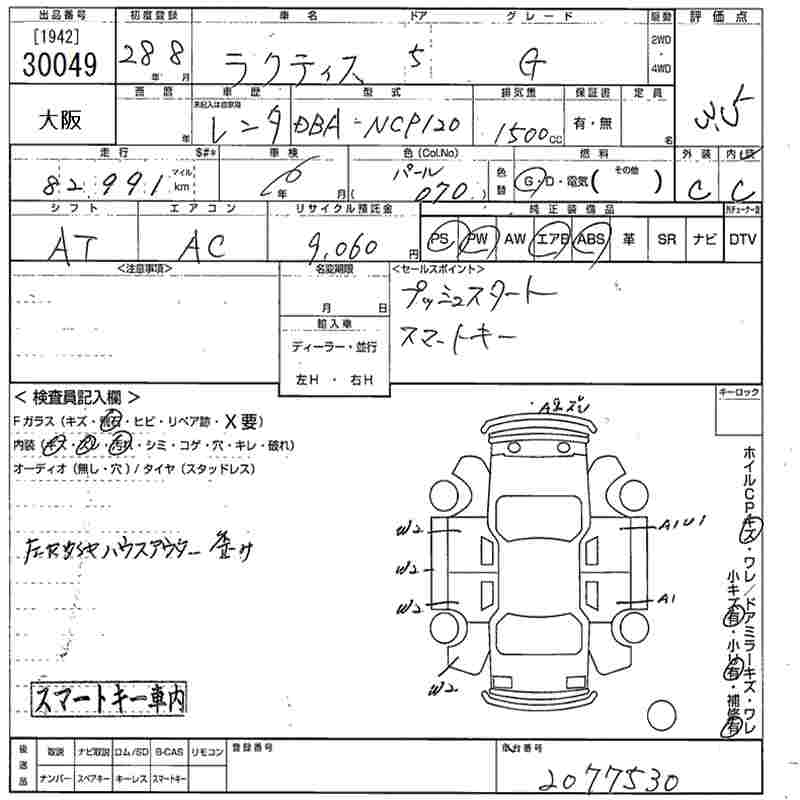 出品番号 初度登録 車名 ドア グレード 駆動 評価点
[1942]
30049 28 8 年 月 ラクティス 5 G 2WD・4WD 3.5
西暦 車歴 型式 排気量 保証書 定員
未記入は自家用
大阪 年 レンタ DBA-NCP120 1500cc 有・無 名
走行 $#* 車検 色(Col.No) 燃料 外装 内装
82,991 マイル km 6年 月 パール (070) 色替 G・D・電気(その他) C C
シフト エアコン リサイクル預託金 純正装備品
AT AC 9,060円 PS PW AW エアB ABS 革 SR ナビ DTV
<注意事項> 名変期限 <セールスポイント>
月 日 プッシュスタート
輸入車 スマートキー
ディーラー・並行
左H・右H
<検査員記入欄> キーロック
Fガラス(キズ・飛石・ヒビ・リペア跡・X要)
内装(キズ・スレ・汚れ・シミ・コゲ・穴・キレ・破れ)
オーディオ(無し・穴)/タイヤ(スタッドレス)
A2ズレ
W2 A1U1
W2
W2 A1
W2
ハウスアウター
ホイルCPキズ・ワレ/ドアミラーキズ・ワレ
小キズ有・小U有・補修有
スマートキー車内
後送品 取説 ナビ取説 ロム/SD B-CAS リモコン 登録番号 車台番号
ナンバー スペアキー キーレス スマートキー 2077530